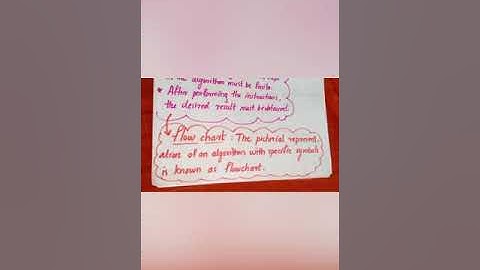 the algorithm must be finite.
* After performing the instructions,
the desired result must be obtained.
Flow chart : The pictorial represent
ations of an algorithm with specific symbols
is known as flowchart.